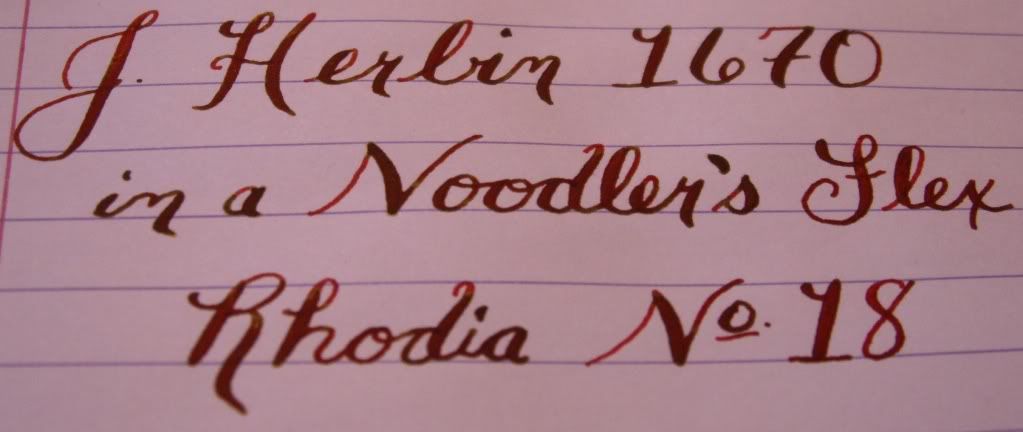 J. Herbin 1670
in a Noodler's Flex
Rhodia No. 18